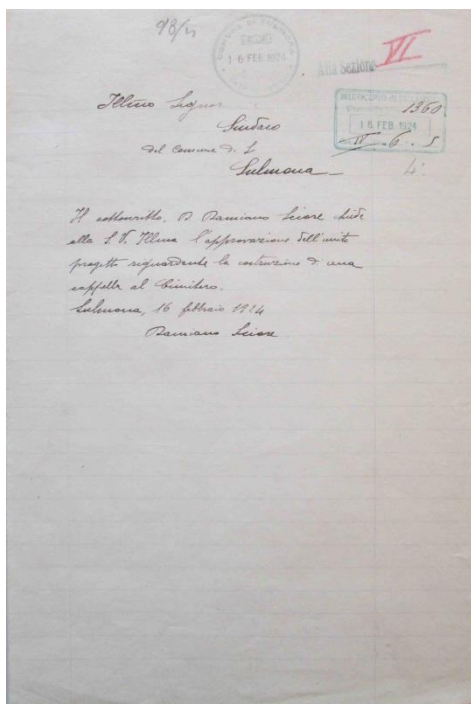 98/21
COMUNE DI SULMONA
16 FEB. 1924
Alla Sezione VI
MUNICIPIO DI SULMONA
1360
16 FEB 1924
6 5
4
Illmo Signor
Sindaco
del Comune di
Sulmona
Il sottoscritto, Damiano Sciore chiede
alla S. V. Illma l'approvazione dell'unito
progetto riguardante la costruzione di una
cappella al Cimitero.
Sulmona, 16 febbraio 1924
Damiano Sciore